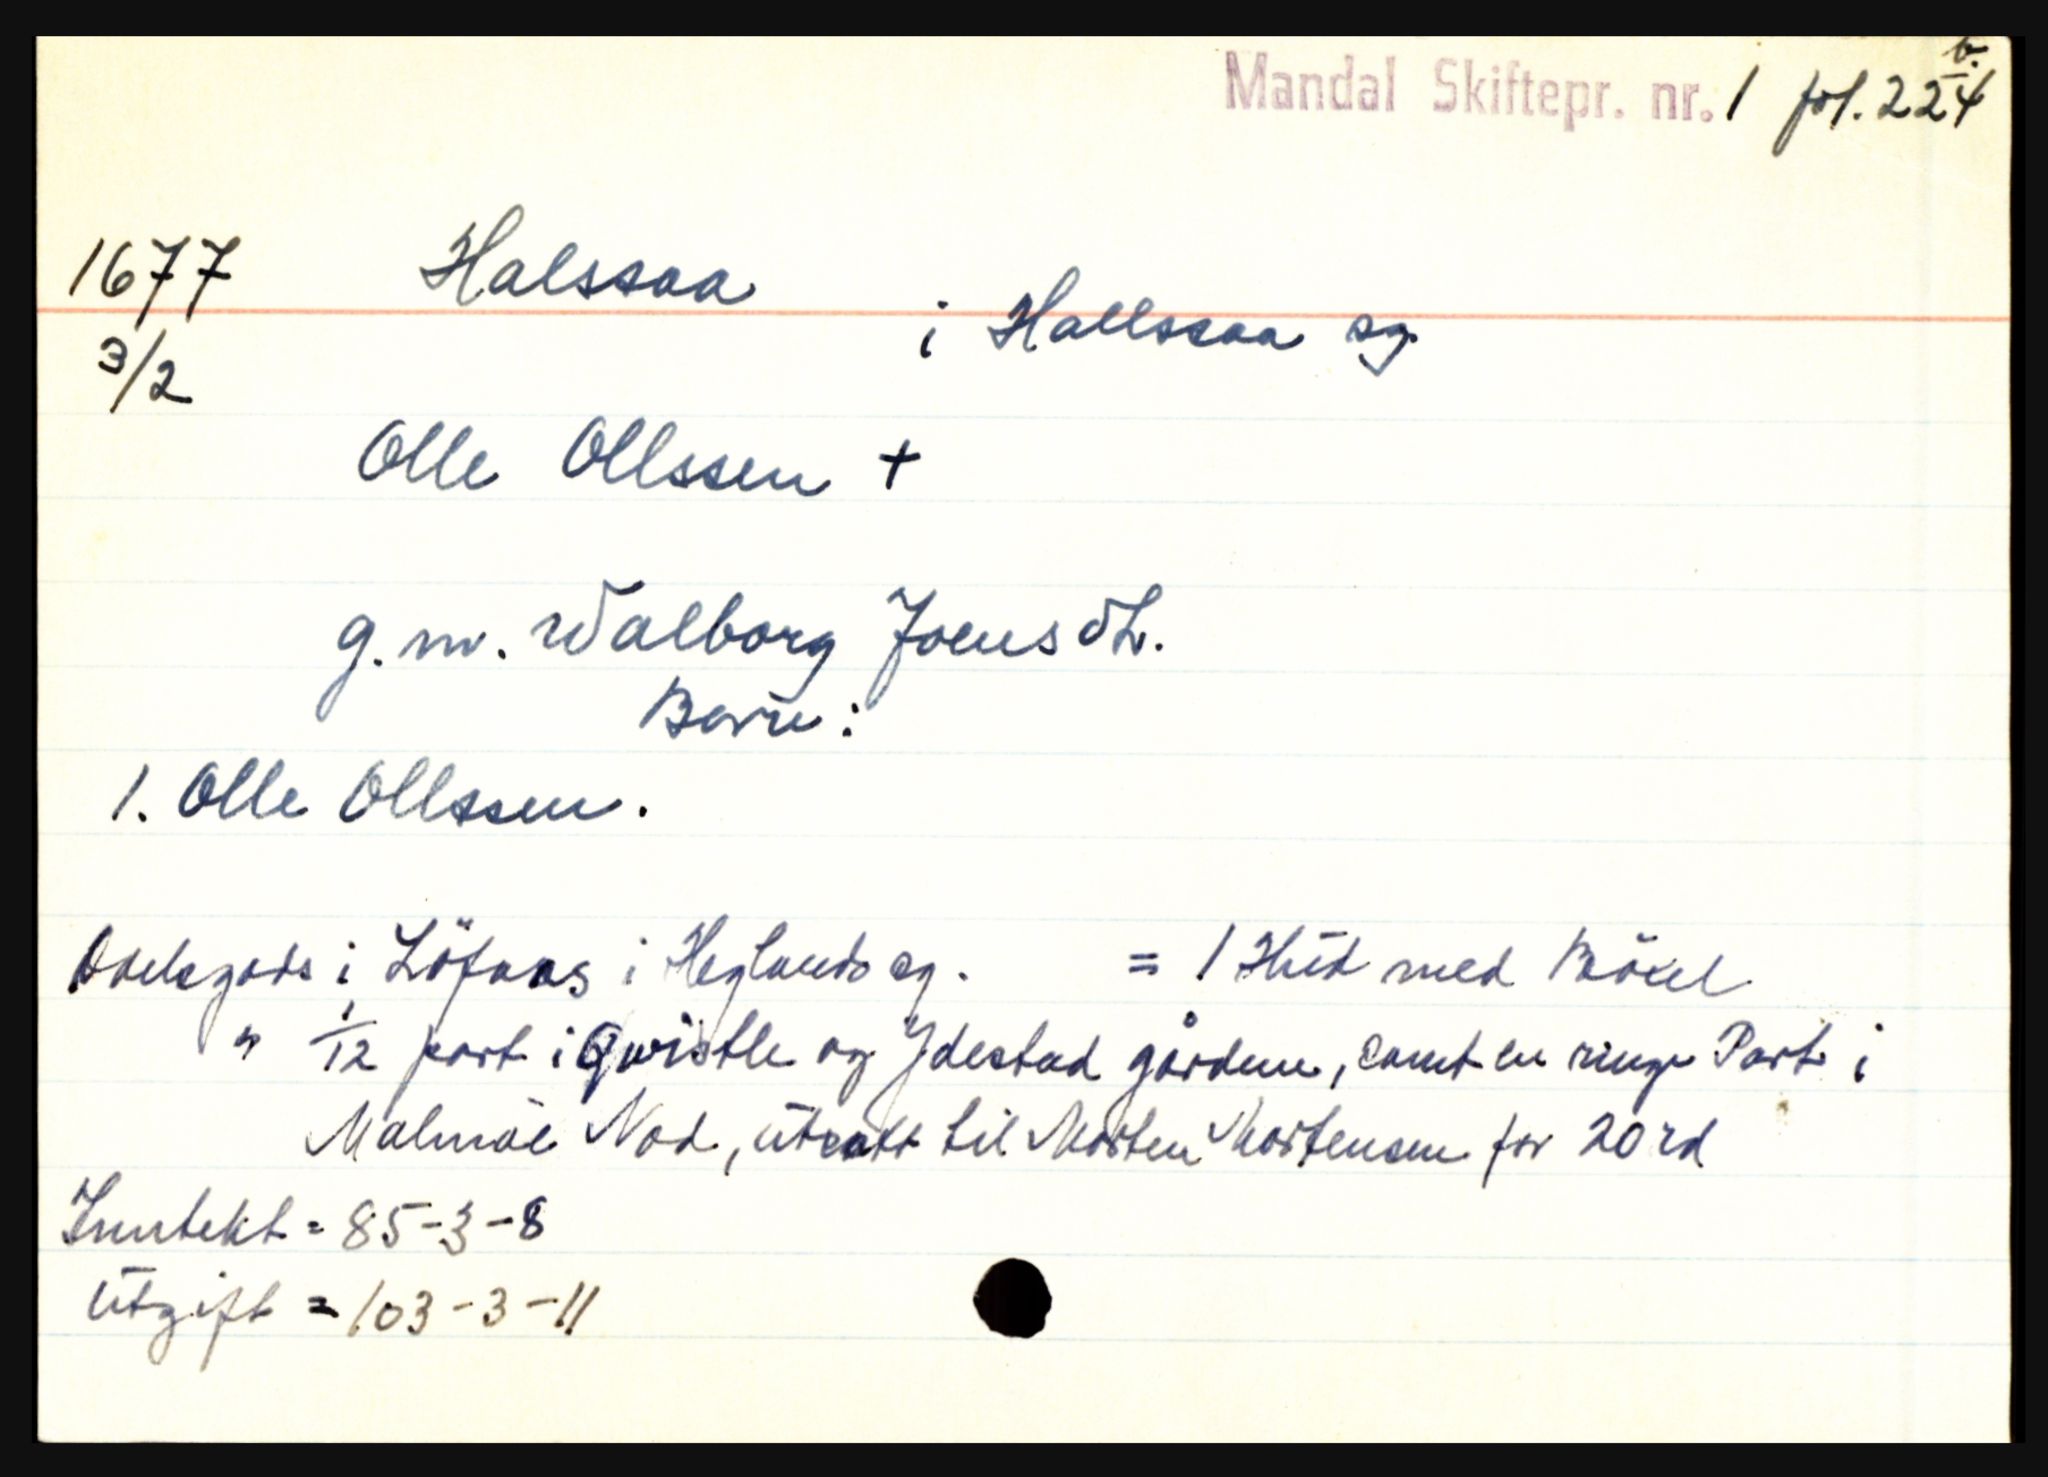 Mandal Skiftepr. nr. 1 fol. 224 b.
1677 Halssaa
i Hallssaa sg.
3/2
Olle Ollssen +
g. m. Walborg Joensdt.
Børn:
1. Olle Ollssen.
Odelsgods i Löfaas i Heglands sg. = 1 Hud med Böxel
" 1/12 part i Qwistle og Ydestad gårdene, samt en ringe Part i
Malmöe Nod, utsatt til Morten Mortensen for 20 rd
Inntekt = 85-3-8
Utgift = 103-3-11